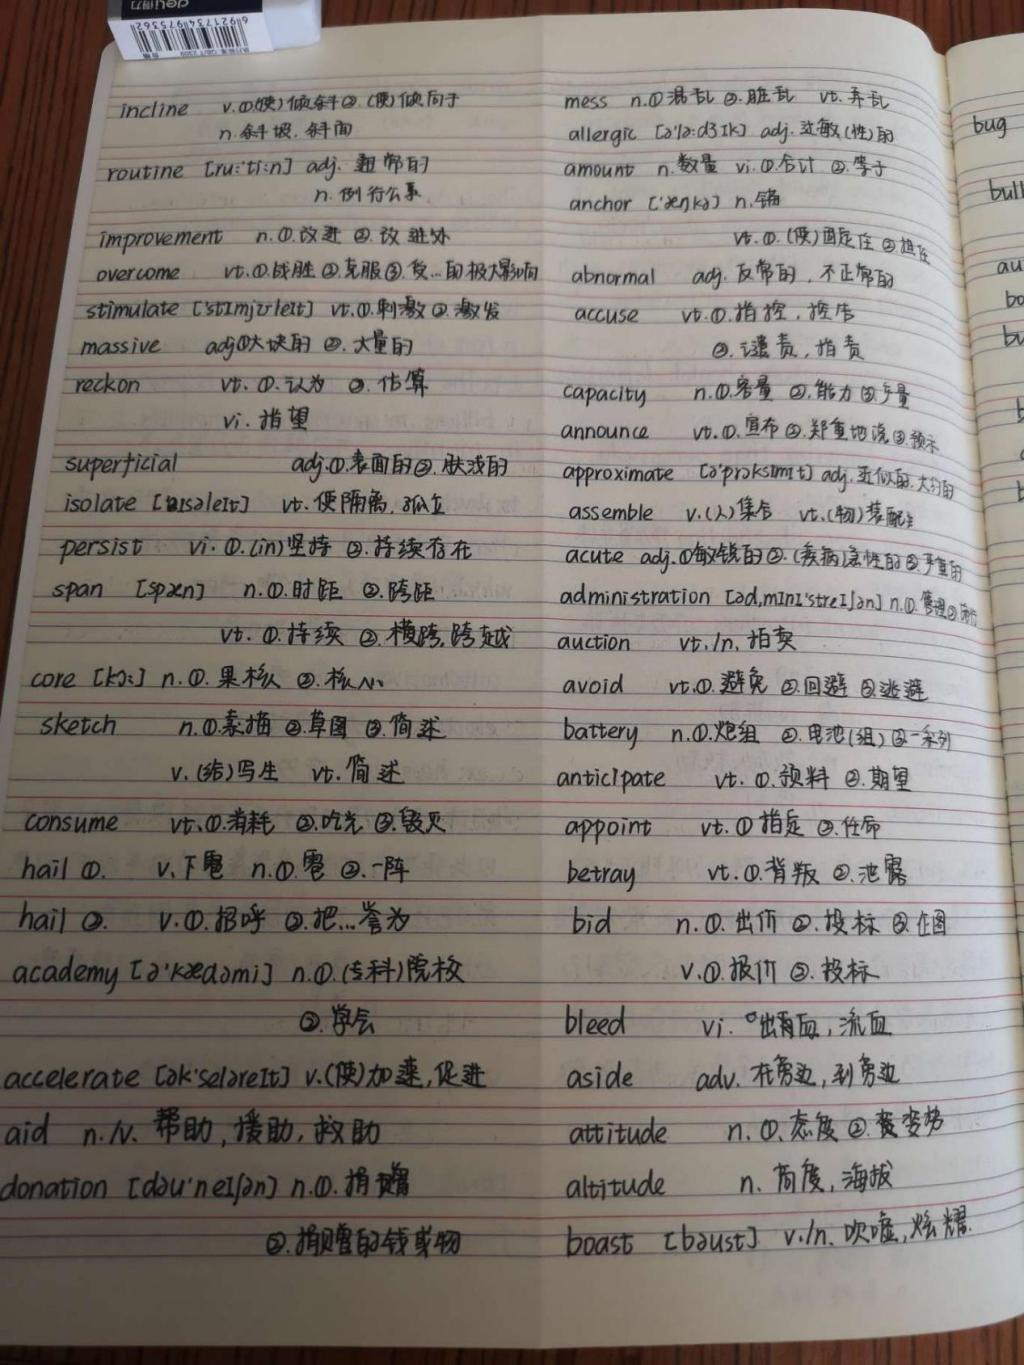 deli得力
6921734975362
incline v.①(使)倾斜②.(使)倾向于
n.斜坡,斜面
routine [ru:'ti:n] adj. 通常的
n.例行公事
improvement n.①.改进 ②.改进处
overcome vt.①战胜 ②.克服③.受...的极大影响
stimulate ['stImjʊleIt] vt.①.刺激 ②.激发
massive adj①大块的 ②.大量的
reckon vt.①.认为 ②.估算
vi.指望
superficial adj.①.表面的②.肤浅的
isolate [aIsəleIt] vt.使隔离,孤立
persist vi.①.(in)坚持 ②.持续存在
span [spæn] n.①.时距 ②.跨距
vt.①.持续 ②.横跨,跨越
core [kɔ:] n.①.果核 ②.核心
sketch n.①.素描 ②.草图 ③.简述
v.(给)写生 vt.简述
consume vt.①.消耗 ②.吃光 ③.毁灭
hail ①. v.下雹 n.①.雹 ②.一阵
hail ②. v.①.招呼 ②.把...誉为
academy [ə'kædəmi] n.①.(专科)院校
②.学会
accelerate [ək'seləreIt] v.(使)加速,促进
aid n./v. 帮助,援助,救助
donation [dəu'neIʃən] n.①.捐赠
②.捐赠的钱或物
mess n.①混乱 ②.脏乱 vt.弄乱
allergic [ə'lə:dʒIk] adj.过敏(性)的
amount n.数量 vi.①.合计 ②.等于
anchor ['æŋkə] n.锚
vt.①.(使)固定住 ②
abnormal adj.反常的,不正常的
accuse vt.①.指控,控告
②.谴责,指责
capacity n.①.容量 ②.能力 ③.产量
announce vt.①.宣布 ②.郑重地说 ③.预示
approximate [ə'prɔksImIt] adj.近似的,大约的
assemble v.(人)集合 vt.(物)装配
acute adj.①敏锐的②.(疾病)急性的③.严重的
administration [əd,mInI'streIʃən] n.①.管理②.
auction vt./n.拍卖
avoid vt.①.避免 ②.回避 ③.逃避
battery n.①.炮组 ②.电池(组)③.一系列
anticipate vt.①.预料 ②.期望
appoint vt.①指定 ②.任命
betray vt.①.背叛 ②.泄露
bid n.①.出价 ②.投标 ③.企图
v.①.报价 ②.投标
bleed vi.出血,流血
aside adv.在旁边,到旁边
attitude n.①.态度 ②.姿势
altitude n.高度,海拔
boast [bəust] v./n.吹嘘,炫耀.
bug
bull
au
bo
bu